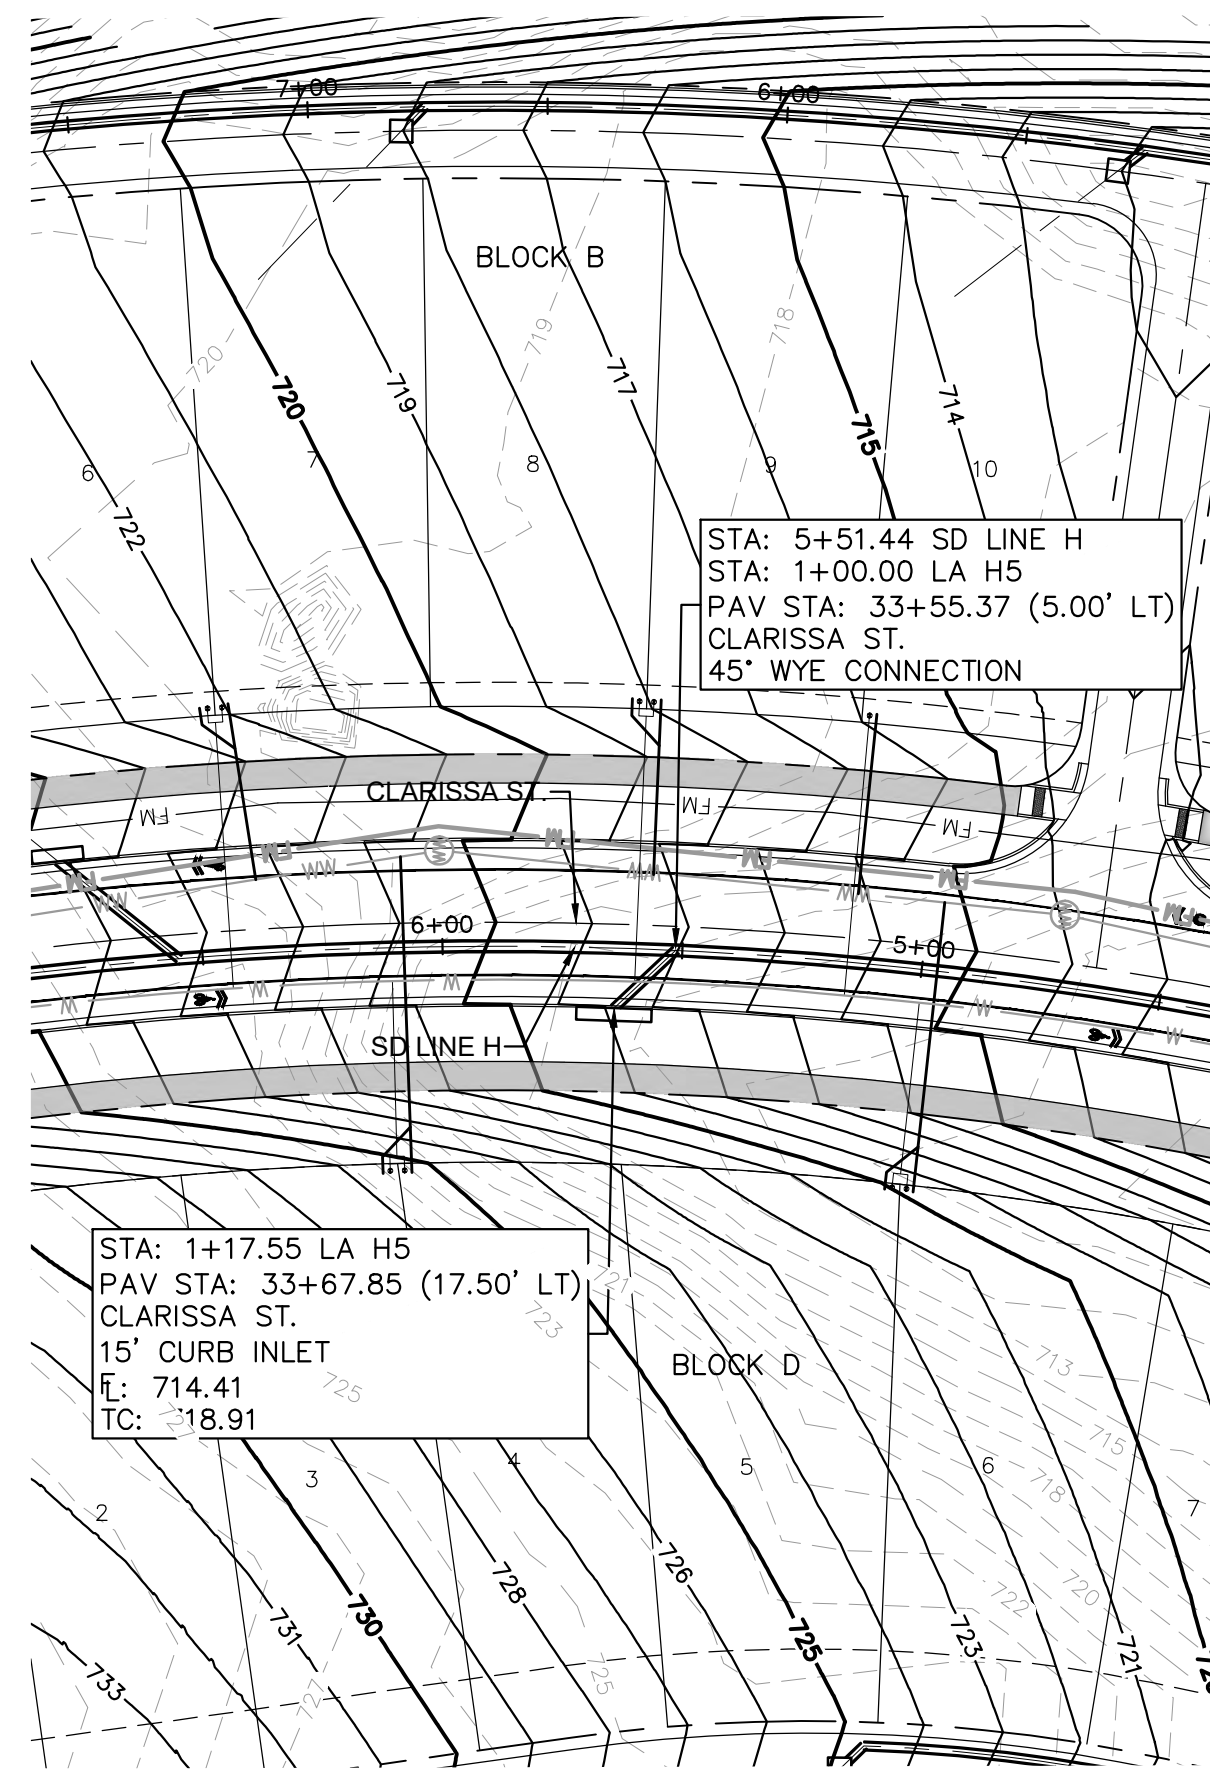 7+00
6+00
BLOCK B
720
719
718
720
719
717
715
714
6
7
8
9
10
722
STA: 5+51.44 SD LINE H
STA: 1+00.00 LA H5
PAV STA: 33+55.37 (5.00' LT)
CLARISSA ST.
45° WYE CONNECTION
CLARISSA ST.
FM
FM
FM
FM
FM
FM
FM
FM
FM
WW
W
WW
WW
WW
W
6+00
5+00
W
W
W
W
W
SD LINE H
STA: 1+17.55 LA H5
PAV STA: 33+67.85 (17.50' LT)
CLARISSA ST.
15' CURB INLET
FL: 714.41
TC: 18.91
721
723
725
BLOCK D
713
715
718
2
3
4
5
6
7
726
728
730
731
733
725
723
721
722
720
725
727